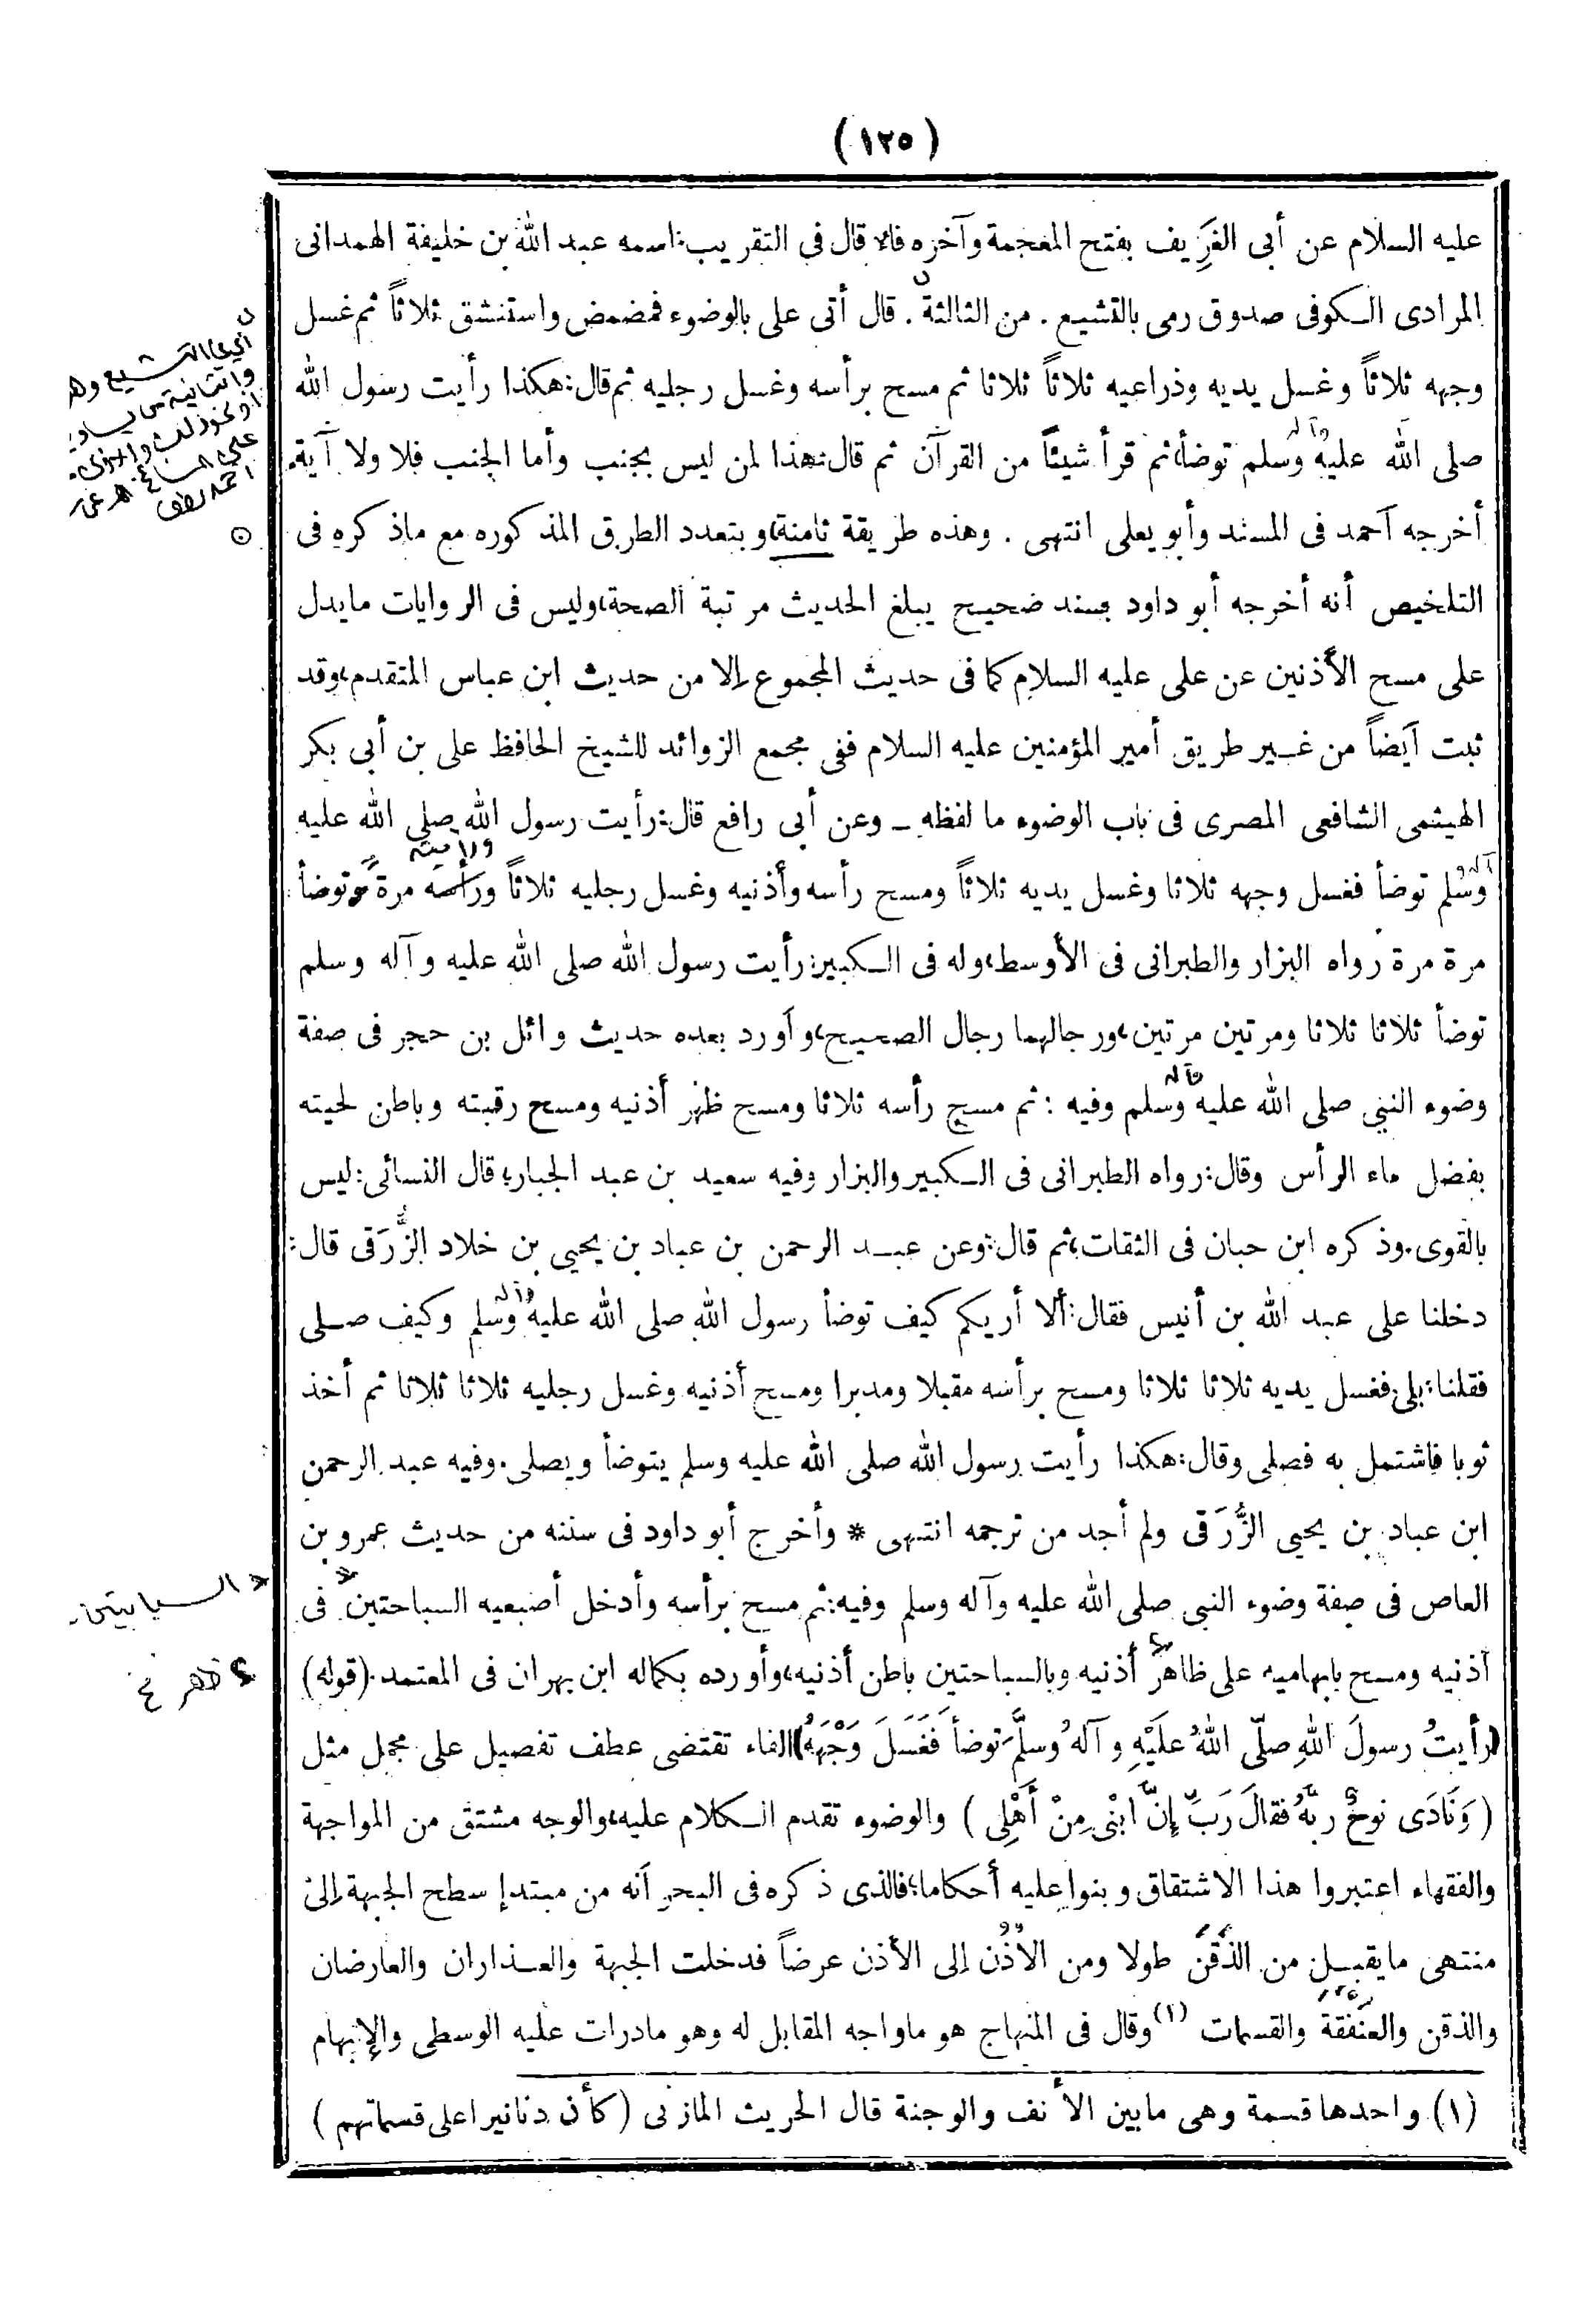 (١٢٥)
عليه السلام عن أبى الغَرِيف بفتح المعجمة وآخره فاء قال فى التقريب: اسمه عبد الله بن خليفة الهمدانى
المرادى الكوفى صدوق رمى بالتشيع . من الثالثة . قال أتى على بالوضوء فمضمض واستنشق ثلاثاً ثم غسل
وجهه ثلاثاً وغسل يديه وذراعيه ثلاثاً ثلاثا ثم مسح برأسه وغسل رجليه ثم قال: هكذا رأيت رسول الله
صلى الله عليه وآله وسلم توضأ، ثم قرأ شيئاً من القرآن ثم قال: هذا لمن ليس بجنب وأما الجنب فلا ولا آية.
أخرجه أحمد فى المسند وأبو يعلى انتهى . وهذه طريقة ثامنة، وبتعدد الطرق المذكوره مع ماذكره فى
التلخيص أنه أخرجه أبو داود بسند صحيح يبلغ الحديث مرتبة الصحة، وليس فى الروايات مايدل
على مسح الأذنين عن على عليه السلام كما فى حديث المجموع إلا من حديث ابن عباس المتقدم، وقد
ثبت أيضاً من غير طريق أمير المؤمنين عليه السلام ففى مجمع الزوائد للشيخ الحافظ على بن أبى بكر
الهيثمى الشافعى المصرى فى باب الوضوء ما لفظه ــ وعن أبى رافع قال: رأيت رسول الله صلى الله عليه
وآله وسلم توضأ فغسل وجهه ثلاثا وغسل يديه ثلاثاً ومسح رأسه وأذنيه وغسل رجليه ثلاثاً ورأسه مرة وتوضأ
ورأيته
مرة مرة رواه البزار والطبرانى فى الأوسط، وله فى الكبير: رأيت رسول الله صلى الله عليه وآله وسلم
توضأ ثلاثا ثلاثا ومرتين مرتين، ورجالهما رجال الصحيح، وأورد بعده حديث وائل بن حجر فى صفة
وضوء النبى صلى الله عليه وآله وسلم وفيه : ثم مسح رأسه ثلاثا ومسح ظهر أذنيه ومسح رقبته وباطن لحيته
بفضل ماء الرأس وقال: رواه الطبرانى فى الكبير والبزار وفيه سعيد بن عبد الجبار، قال النسائى: ليس
بالقوى. وذكره ابن حبان فى الثقات، ثم قال: وعن عبد الرحمن بن عباد بن يحيى بن خلاد الزُّرَقى قال:
دخلنا على عبد الله بن أنيس فقال: ألا أريكم كيف توضأ رسول الله صلى الله عليه وآله وسلم وكيف صلى
فقلنا: بلى، فغسل يديه ثلاثا ثلاثا ومسح برأسه مقبلا ومدبرا ومسح أذنيه وغسل رجليه ثلاثا ثلاثا ثم أخذ
ثوبا فاشتمل به فصلى وقال: هكذا رأيت رسول الله صلى الله عليه وسلم يتوضأ ويصلى. وفيه عبد الرحمن
ابن عباد بن يحيى الزُّرَقى ولم أجد من ترجمه انتهى * وأخرج أبو داود فى سننه من حديث عمرو بن
العاص فى صفة وضوء النبى صلى الله عليه وآله وسلم وفيه: ثم مسح برأسه وأدخل أصبعيه السباحتين فى
أذنيه ومسح بابهاميه على ظاهر أذنيه وبالسباحتين باطن أذنيه، وأورده بكماله ابن بهران فى المعتمد. (قوله)
(رأيتُ رسولَ اللهِ صلّى اللهُ عَلَيْهِ وآلهُ وسلَّمَ توضأ فَغَسَلَ وَجْهَهُ) الفاء تقتضى عطف تفصيل على مجمل مثل
(وَنَادَى نوحٌ ربَّهُ فقالَ رَبِّ إِنَّ ابْنى مِنْ أَهْلِى) والوضوء تقدم الكلام عليه، والوجه مشتق من المواجهة
والفقهاء اعتبروا هذا الاشتقاق وبنوا عليه أحكاما، فالذى ذكره فى البحر أنه من مبتدإ سطح الجبهة إلى
منتهى مايقبل من الذقن طولا ومن الأذُن إلى الأذن عرضاً فدخلت الجبهة والعذاران والعارضان
والذقن والعنفقة والقسمات (١) وقال فى المنهاج هو ماواجه المقابل له وهو مادرات عليه الوسطى والإبهام
(١) واحدها قسمة وهى مابين الأنف والوجنة قال الحريث المازنى (كأن دنانيرا على قسماتهم)
السبابتين
ظاهر خ